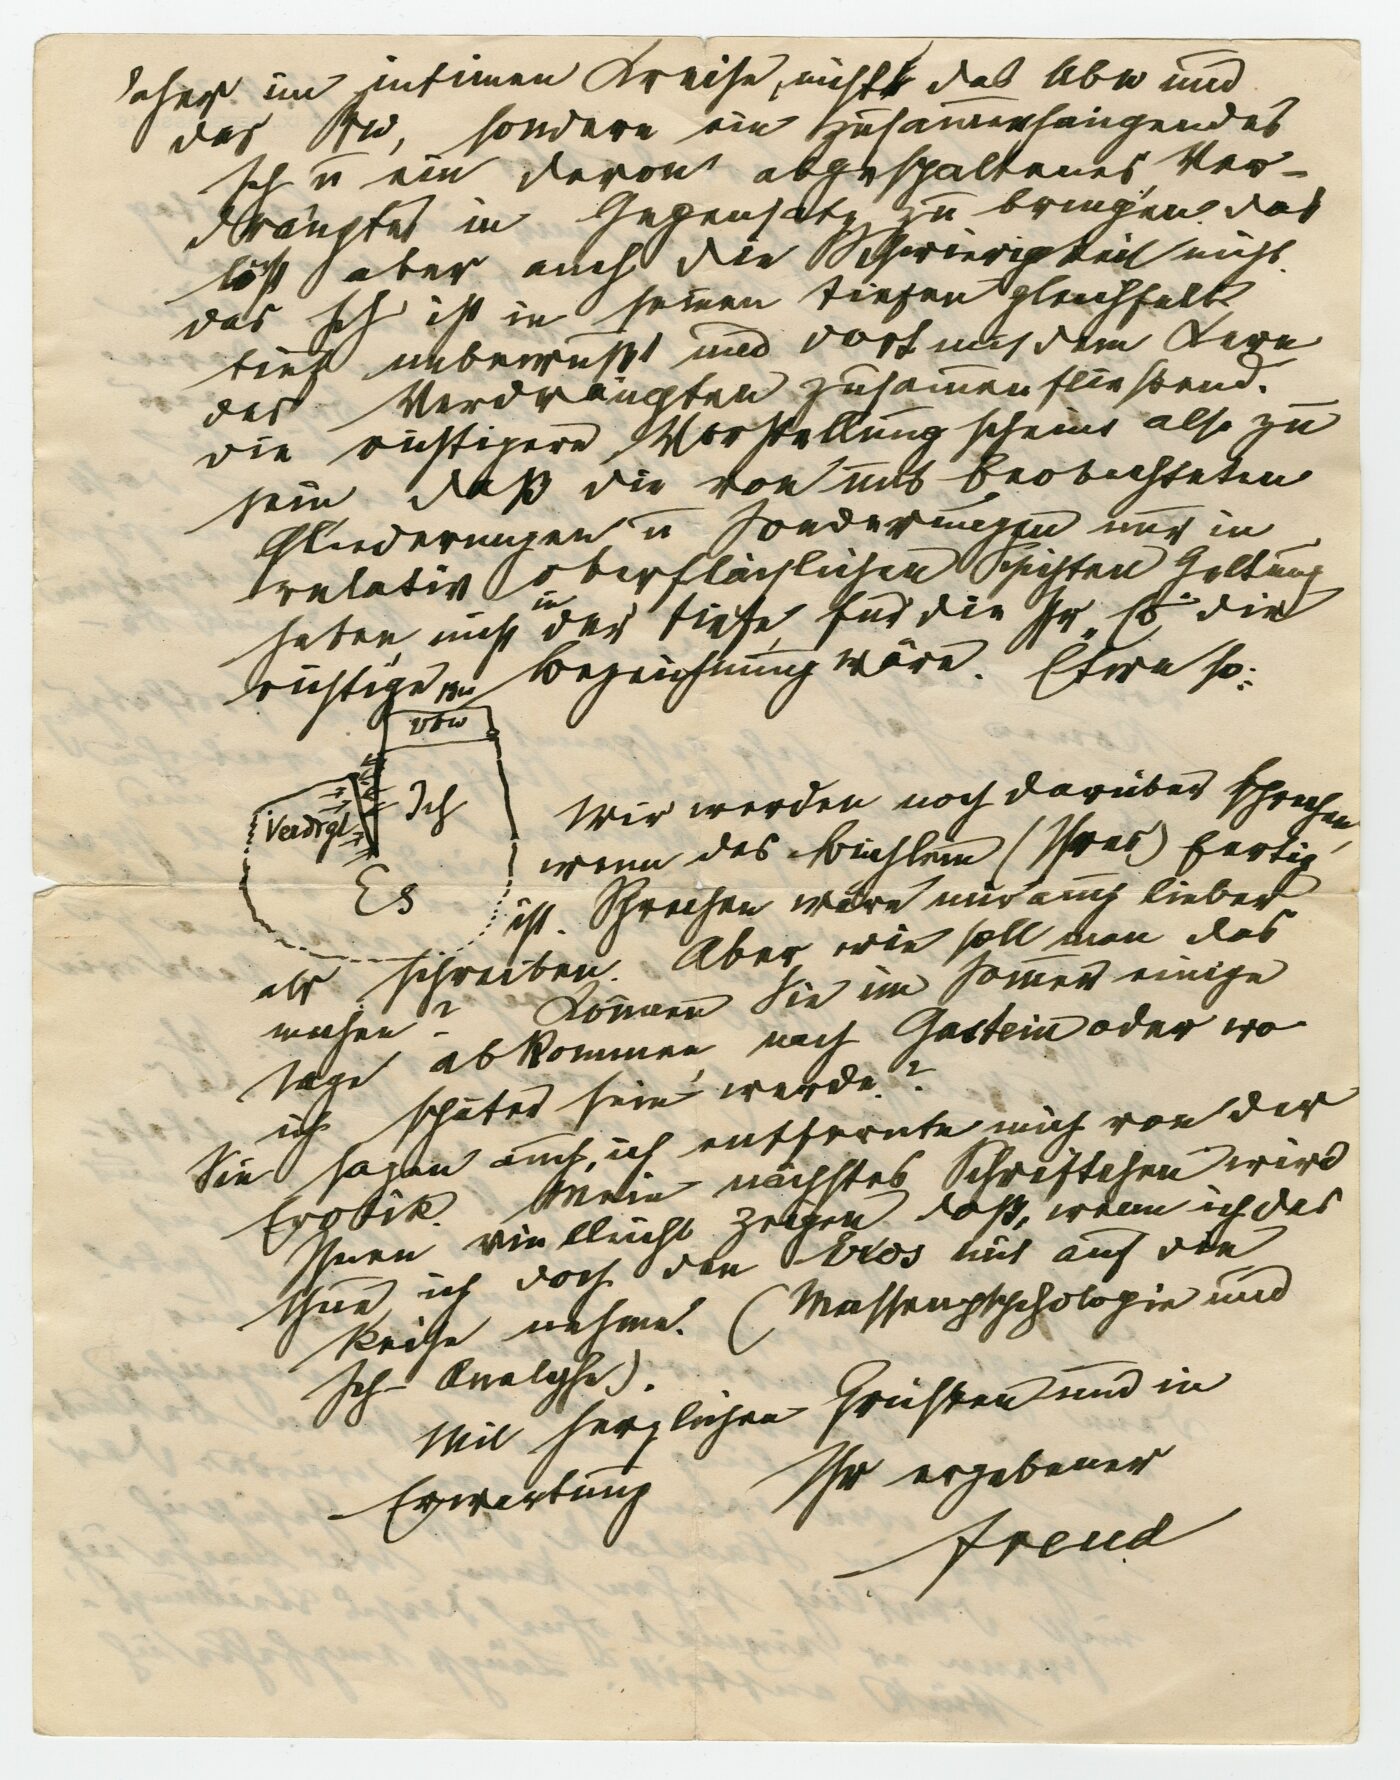 daher im intimen Kreise, nicht das Ubw und
das Vbw, sondern ein zusammenhängendes
Ich u ein davon abgespaltenes Ver-
drängtes in Gegensatz zu bringen. das
löst aber auch die Schwierigkeit nicht.
das Ich ist in seinen Tiefen gleichfalls
tief unbewußt und dort mit dem Kern
des Verdrängten zusammenfließend.
die richtigere Vorstellung scheint also zu
sein daß die von uns beobachteten
Gliederungen u Sonderungen nur in
relativ oberflächlichen Schichten Geltung
haben, nicht in der Tiefe, für die Ihr „Es" die
richtige Bezeichnung wäre. Etwa so:
Bw
Vbw
Ich
Verdrgt
Es
Wir werden noch darüber sprechen,
wenn das Büchlein (Ihres) fertig
ist. Sprechen wäre mir auch lieber
als schreiben. Aber wie soll man das
machen? Können Sie im Sommer einige
Tage abkommen, nach Gastein oder wo
ich später sein werde?
Sie sagen auch, ich entfernte mich von der
Erotik. Mein nächstes Schriftchen wird
Ihnen vielleicht zeigen daß, wenn ich das
thue, ich doch den Eros mit auf die
Reise nehme. (Massenpsychologie und
Ich-Analyse).
Mit herzlichen Grüßen und in
Erwartung Ihr ergebener
Freud